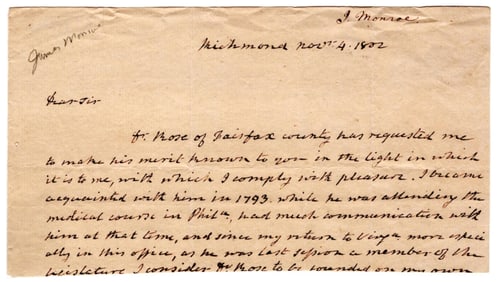 J. Monroe
James Monroe
Richmond Novr. 4. 1802
Dear Sir
Dr. Rose of Fairfax county has requested me
to make his merit known to you in the light in which
it is to me, with which I comply with pleasure. I became
acquainted with him in 1793. while he was attending the
medical course in Phila., had much communication with
him at that time, and since my return to Virga. more especi
ally in this office, as he was last session a member of the
legislature. I consider Dr. Rose to be founded on my own